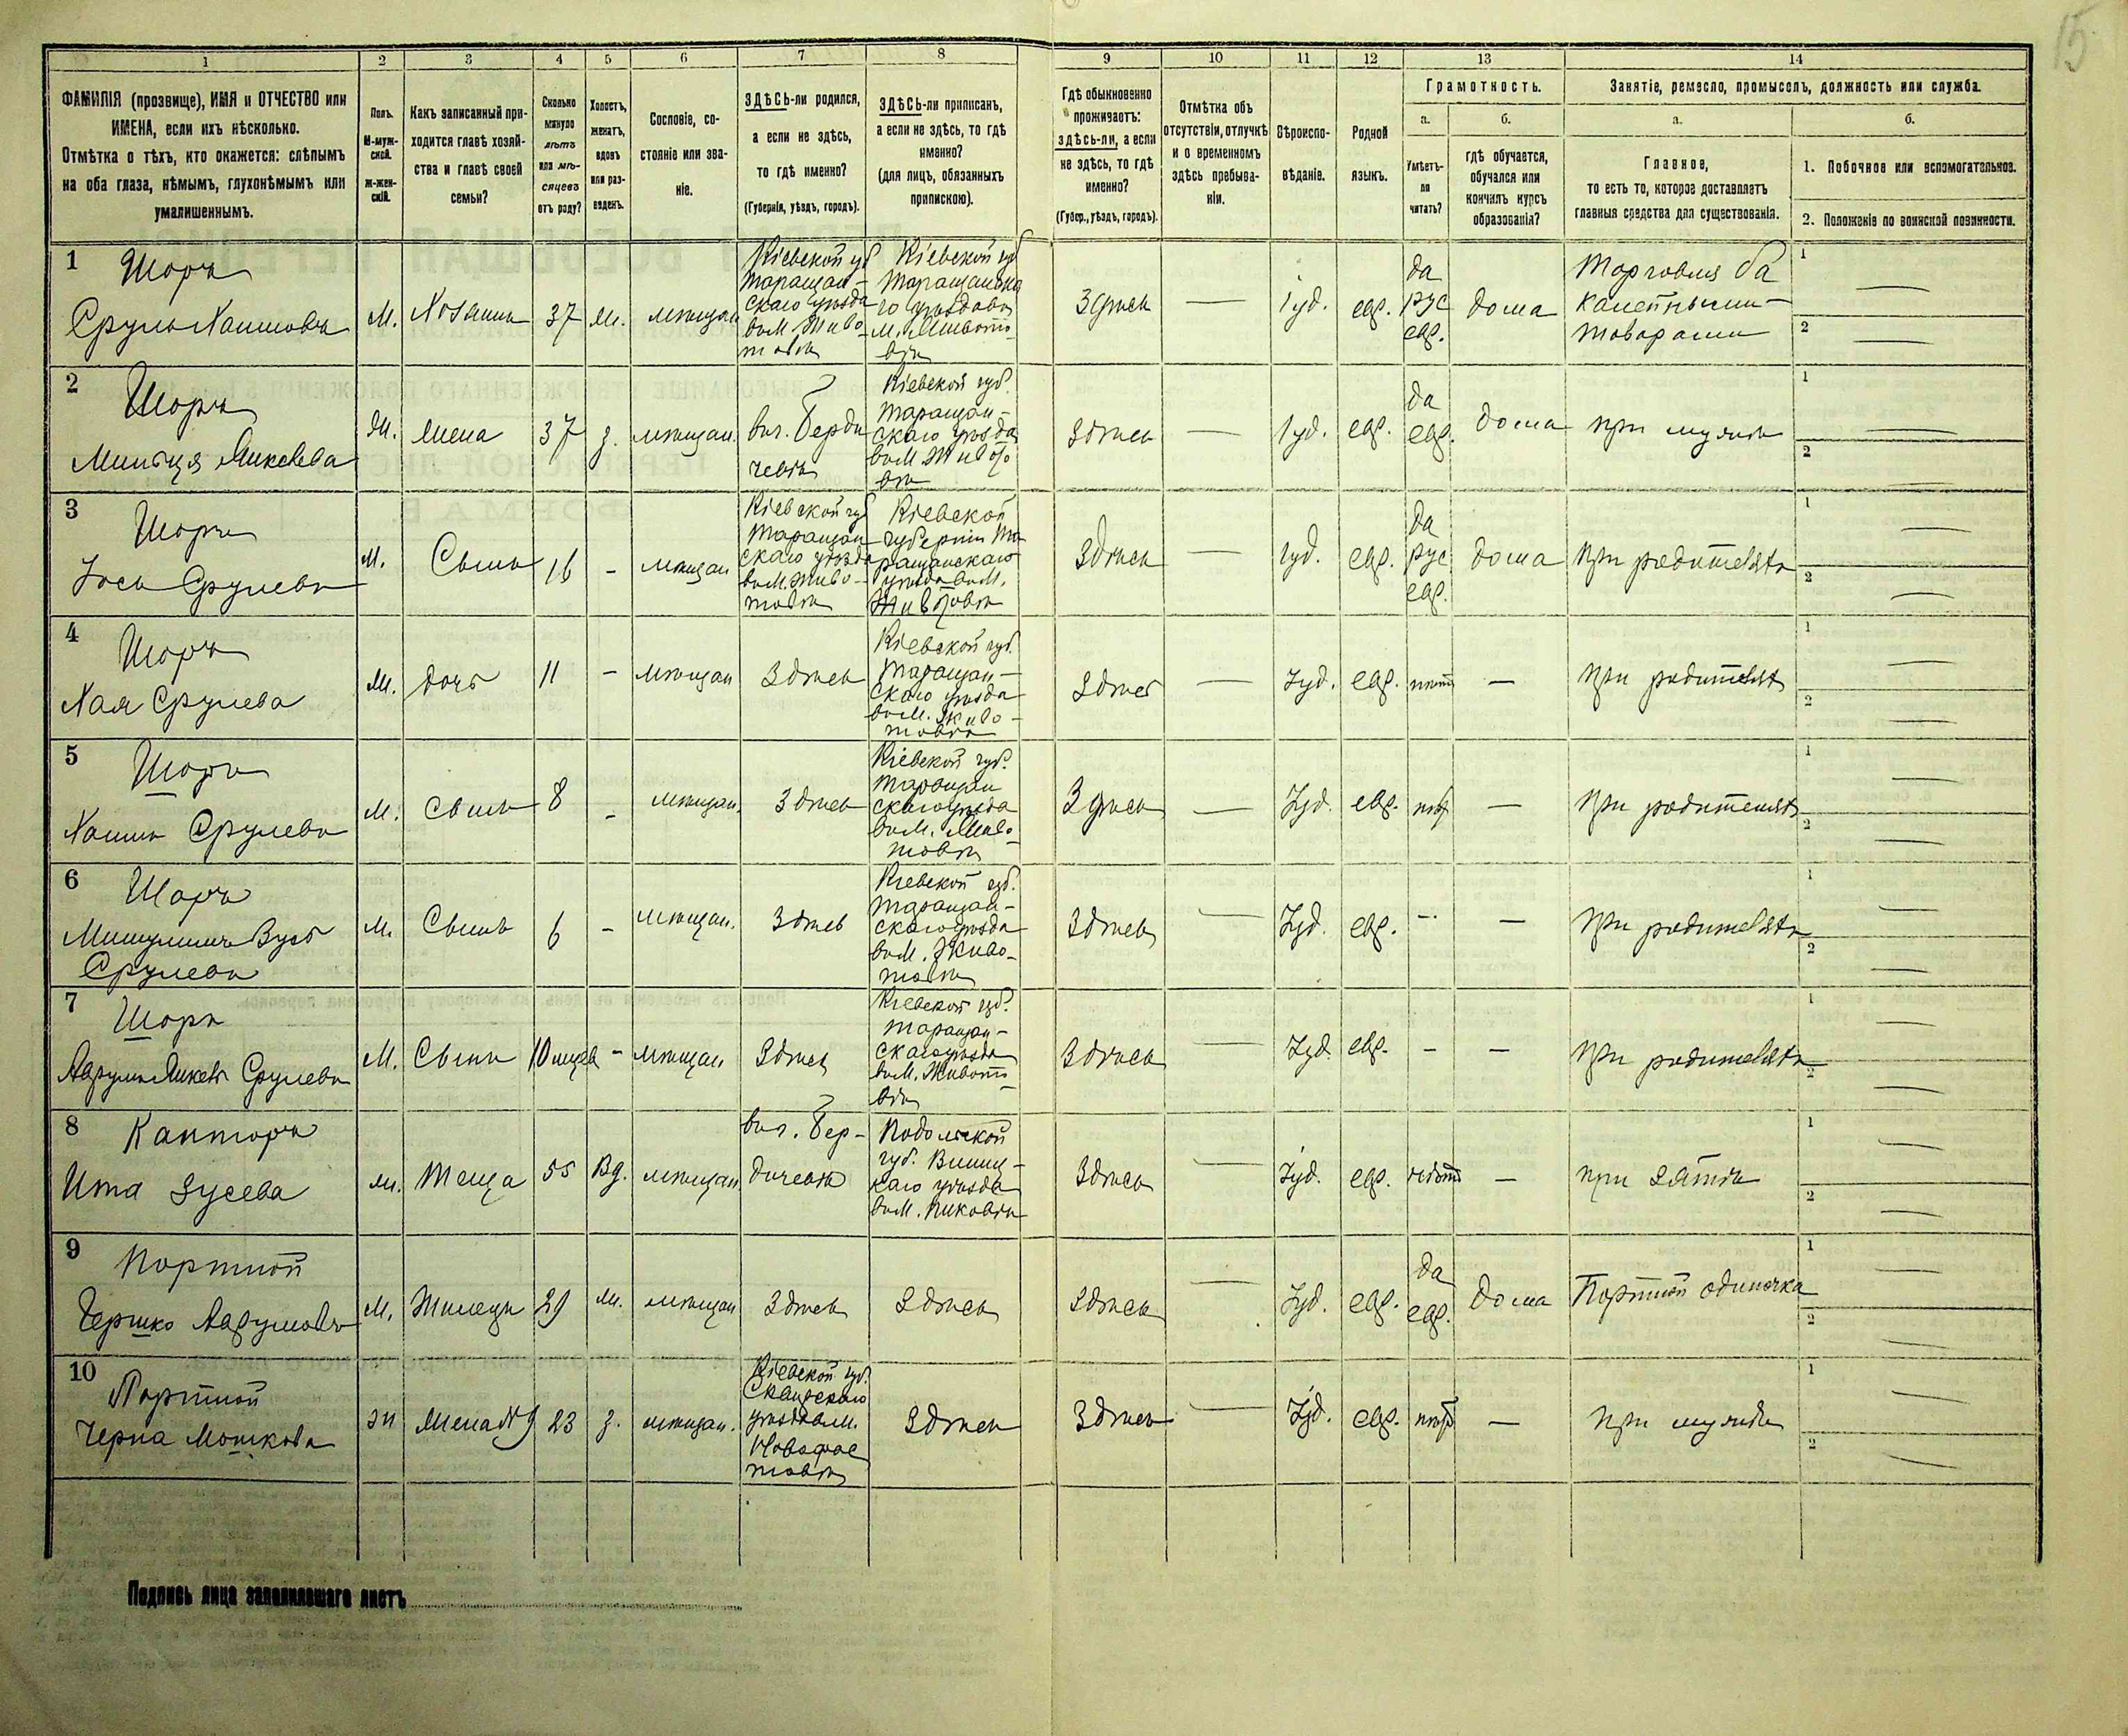 15
1 2 3 4 5 6 7 8 9 10 11 12 13 14
ФАМИЛІЯ (прозвище), ИМЯ и ОТЧЕСТВО или
ИМЕНА, если ихъ нѣсколько.
Отмѣтка о тѣхъ, кто окажется: слѣпымъ
на оба глаза, нѣмымъ, глухонѣмымъ или
умалишеннымъ.
Полъ.
М-муж-
ской.
Ж-жен-
скій.
Какъ записанный при-
ходится главѣ хозяй-
ства и главѣ своей
семьи?
Сколько
минуло
лѣтъ
или мѣ-
сяцевъ
отъ роду?
Холостъ,
женатъ,
вдовъ
или раз-
веденъ.
Сословіе, со-
стояніе или зва-
ніе.
ЗДѢСЬ-ли родился,
а если не здѣсь,
то гдѣ именно?
(Губернія, уѣздъ, городъ).
ЗДѢСЬ-ли приписанъ,
а если не здѣсь, то гдѣ
именно?
(для лицъ, обязанныхъ
припискою).
Гдѣ обыкновенно
проживаетъ:
здѣсь-ли, а если
не здѣсь, то гдѣ
именно?
(Губер., уѣздъ, городъ).
Отмѣтка объ
отсутствіи, отлучкѣ
и о временномъ
здѣсь пребыва-
ніи.
Вѣроиспо-
вѣданіе.
Родной
языкъ.
Грамотность.
а.
Умѣетъ-
ли
читать?
б.
гдѣ обучается,
обучался или
кончилъ курсъ
образованія?
Занятіе, ремесло, промыселъ, должность или служба.
а.
Главное,
то есть то, которое доставляетъ
главныя средства для существованія.
б.
1. Побочное или вспомогательное.
2. Положеніе по воинской повинности.
1
Шоръ
Сруль Хаимовъ
М.
Хозяинъ
37
ж.
мѣщан
Кіевской губ
Таращан-
скаго уѣзда
въ м. Живо-
товѣ
Кіевской губ
Таращанска
го уѣзда въ
м. Живото-
вѣ
Здѣсь
—
Іуд.
евр.
да
рус
евр.
дома
Торговля ба
калейными
товарами
1 —
2 —
2
Шоръ
Миньця Янкелева
Ж.
Жена
37
з.
мѣщан.
въ г. Берди
чевѣ
Кіевской губ.
Таращан-
скаго уѣзда
въ м. Живото
вѣ
Здѣсь
—
Іуд.
евр.
да
евр.
дома
при мужѣ
1 —
2 —
3
Шоръ
Іось Срулевъ
М.
Сынъ
16
-
мѣщан
Кіевской губ
Таращан
скаго уѣзда
въ м. Живо-
товѣ
Кіевской
губерніи Та
ращанскаго
уѣзда въ м.
Животовѣ
Здѣсь
—
Іуд.
евр.
да
рус
евр.
дома
при родителяхъ
1 —
2 —
4
Шоръ
Хая Срулева
Ж.
дочь
11
-
мѣщан
Здѣсь
Кіевской губ.
Таращан-
скаго уѣзда
въ м. Живо-
товѣ
Здѣсь
—
Іуд.
евр.
нѣтъ
—
при родителяхъ
1 —
2 —
5
Шоръ
Хаимъ Срулевъ
М.
Сынъ
8
-
мѣщан.
Здѣсь
Кіевской губ.
Таращан
скаго уѣзда
въ м. Живо-
товѣ
Здѣсь
—
Іуд.
евр.
нѣтъ
—
при родителяхъ
1 —
2 —
6
Шоръ
Срулевъ
М.
Сынъ
6
-
мѣщан.
Здѣсь
Кіевской губ.
Таращан-
скаго уѣзда
въ м. Живо-
товѣ
Здѣсь
—
Іуд.
евр.
-
—
при родителяхъ
1 —
2 —
7
Шоръ
Аврумъ Янкель Срулевъ
М.
Сынъ
10 мцев
-
мѣщан.
Здѣсь
Кіевской губ.
Таращан-
скаго уѣзда
въ м. Живото-
вѣ
Здѣсь
Іуд.
евр.
-
-
при родителяхъ
1 —
2 —
8
Канторъ
Ита Зусева
Ж.
Теща
55
Вд.
мѣщан
въ г. Бер-
дичевѣ
Подольской
губ. Винниц-
каго уѣзда
въ м. Пиковѣ
Здѣсь
—
Іуд.
евр.
нѣтъ
—
при зятѣ
1 —
2 —
9
Портной
Гершко Аврумовъ
М.
Жилецъ
29
ж.
мѣщан
Здѣсь
Здѣсь
Здѣсь
—
Іуд.
евр.
да
евр.
дома
Портной одиночка
1 —
2 —
10
Портной
Черна Мошкова
Ж
Жена №9
23
з.
мѣщан.
Кіевской губ.
Сквирскаго
уѣзда въ м.
Здѣсь
Здѣсь
—
Іуд.
евр.
нѣтъ
—
при мужѣ
1 —
2 —
Подпись лица заполнившаго листъ